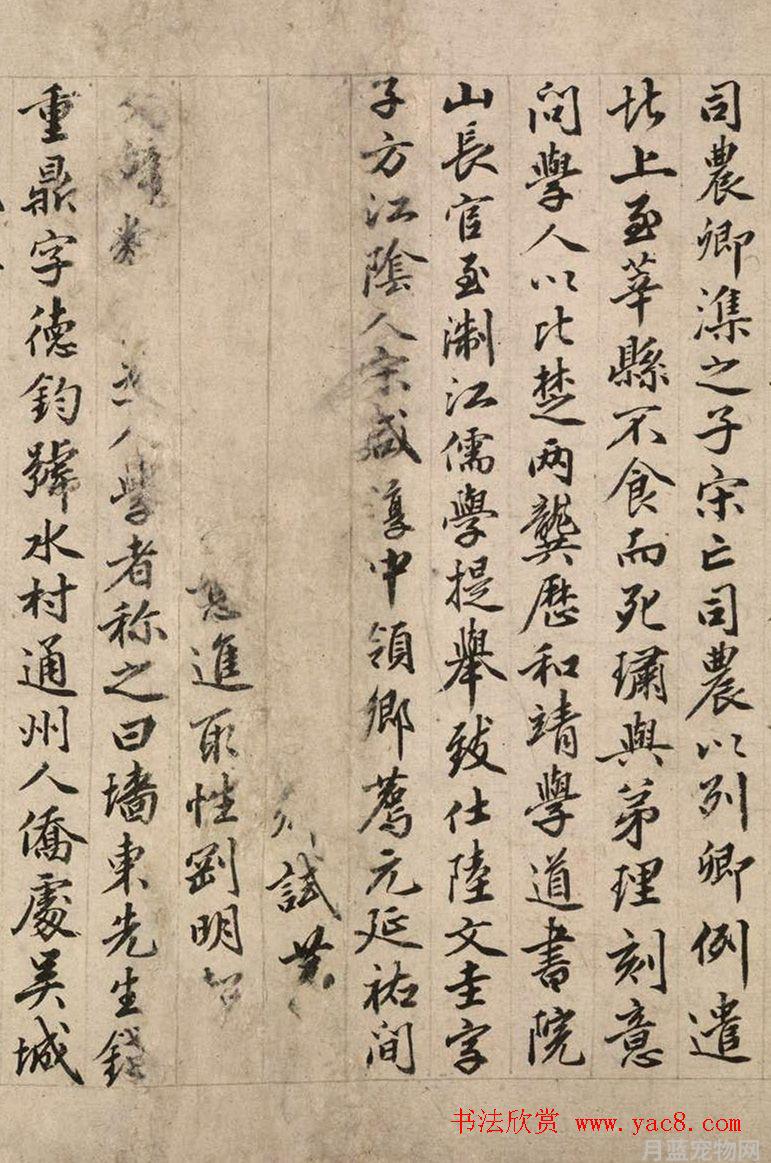 司農卿潗之子宋亡司農以列卿例遣
北上至莘縣不食而死璛與弟理刻意
問學人以比楚两龔歷和靖學道書院
山長官至淛江儒學提舉致仕陸文圭字
子方江陰人宋咸淳中領鄉薦元延祐間
試
進取性剛明
人學者称之曰墻東先生錢
重鼎字德鈞號水村通州人僑處吴城
书法欣赏 www.yac8.com
月蓝宠物网